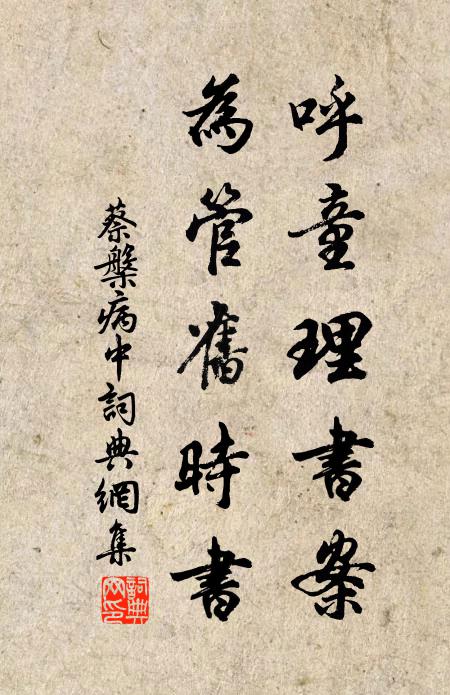 呼童理書案
為管舊時書
蔡槃病中詞典網集
詞典
网印